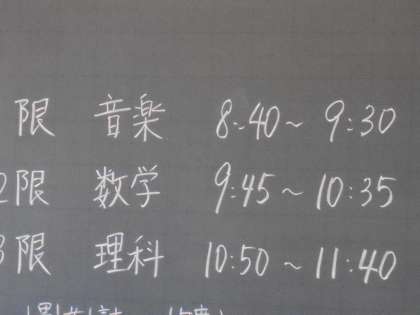 限 音楽 8:40～9:30
2限 数学 9:45～10:35
3限 理科 10:50～11:40